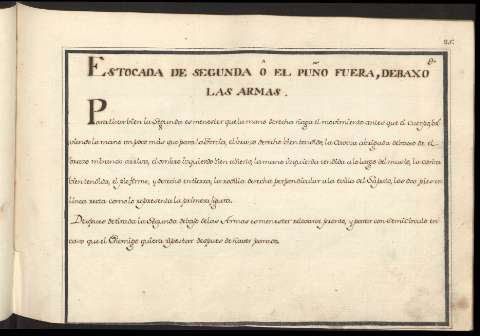 8.
ESTOCADA DE SEGUNDA ô EL PUÑO FUERA, DEBAXO
LAS ARMAS.
Para tirar bien la Segunda es menester que la mano derecha haga el movimiento antes que el Cuerpo, bol
viendo la mano un poco más que para la tercia, el brazo derecho bien tendido, la Cabeza abrigada debaxo de el
brazo mirando el Cuerpo izquierdo bien abierto, la mano izquierda tendida a lo largo del muslo, la Corba
bien tendida, el pie firme, y derecho en la raya, la rodilla derecha perpendicular a la evilla del Zapato, los dos pies en
linea recta como lo representa la primera figura.
Despues de tirada la Segunda debajo de las Armas es menester retirarse pronto, y parar con Semicirculo en
caso que el Enemigo quiera repostar despues de haver parado.